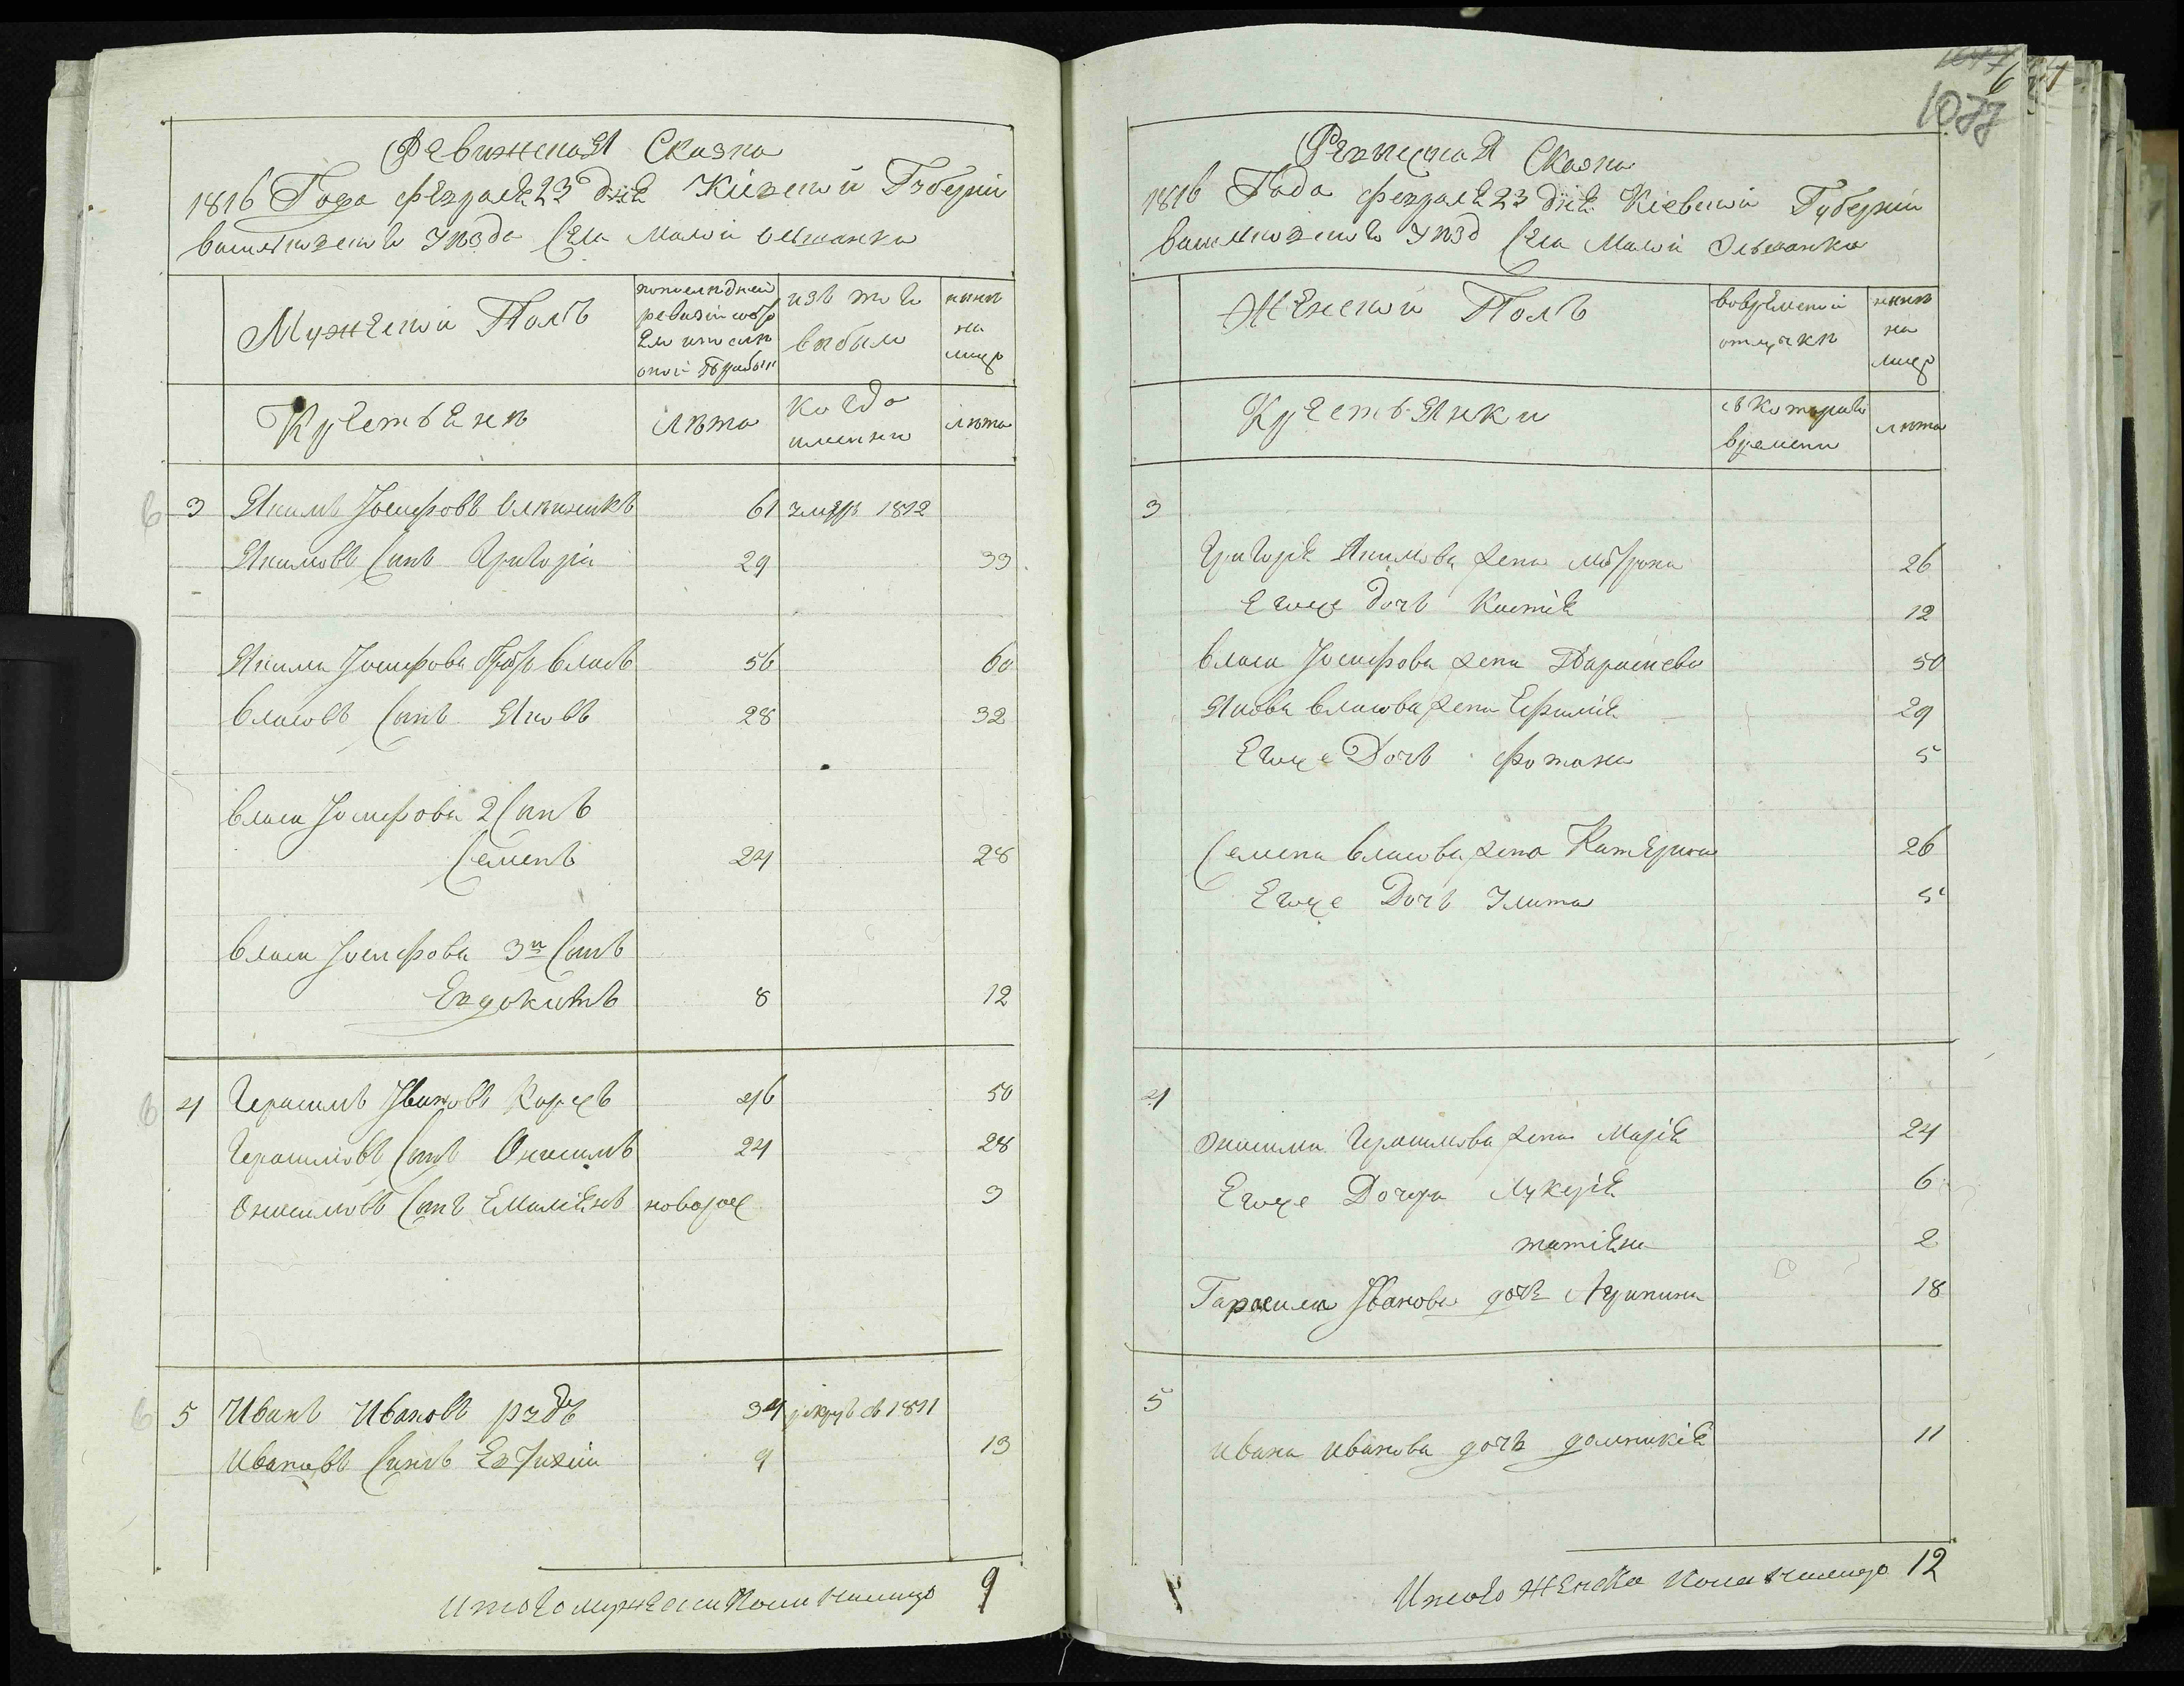 Ревижская Сказка
1816 Года февраля 23 дня Кіевской Губерніи
василковского Уѣзда Села Малой ольшанки
Мужеской Полъ
по последней
ревизіи состо
яло и после
оной прибыл
изъ того
выбыло
нынѣ
на
лицо
Крестьянѣ
лѣта
когда
именно
лѣта
3 Якимъ Іосифовъ 61 умеръ 1812
Якимовъ Сынъ Григорій 29 33
Якима Іосифова братъ власъ 56 60
власовъ Сынъ Яковъ 28 32
власа Іосифова 2 Сынъ
Семенъ 24 28
власа Іосифова 3й Сынъ
Евдокимъ 8 12
4 Герасимъ Ивановъ 46 50
Герасимовъ Сынъ Онисимъ 24 28
Онисимовъ Сынъ Емаліянъ новорож 3
5 Иванъ Ивановъ 34 рекрутъ въ 1811
Ивановъ Сынъ Евфихій 9 13
Итого мужеска пола налицо 9
6
1077
Ревижская Сказка
1816 Года февраля 23 дня Кіевской Губерніи
василковского Уѣзд Села Малой Ольшанки
Женской Полъ
вовремяной
отлучкѣ
нынѣ
на
лицо
Крестьянки
съ которого
времени
лѣта
3
Григорія Якимова жена Мотрона 26
Егоже дочь Настія 12
власа Іосифова жена Парасцева 50
Якова власова жена Ефимія 29
Егоже Дочь фотина 5
Семена власова жена Катерина 26
Егоже Дочь Улита 5
4
Онисима Герасимова жена Марія 24
Егоже Дочери Лукерія 6
татіяна 2
Гарасима Иванова дочь Агрипина 18
5
ивана иванова дочь домникія 11
Итого Женска пола налицо 12